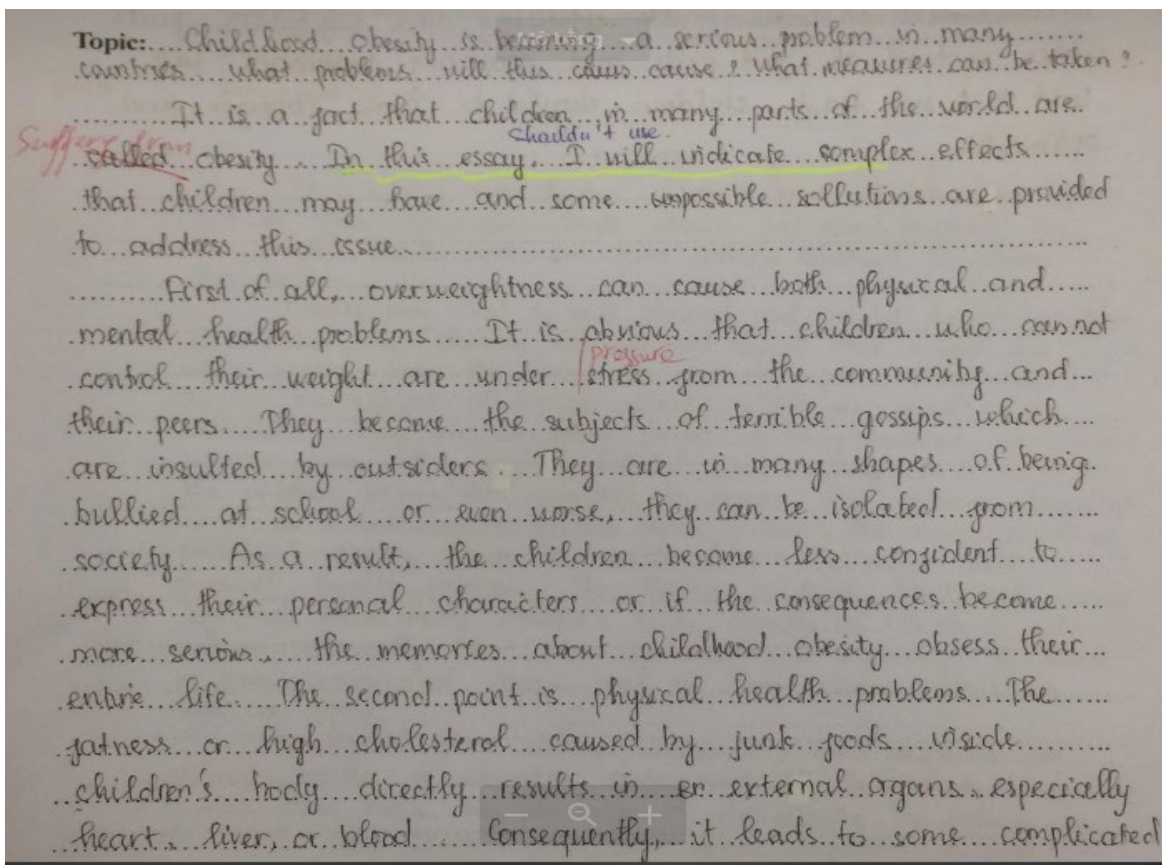 Topic: Childhood obesity is becoming a serious problem in many
countries what problems will this caus cause? What measures can be taken?
It is a fact that children in many parts of the world are
Suffer from
called obesity. In this essay, I will indicate complex effects
shouldn't use
that children may have and some possible sollutions are provided
to address this issue.
First of all, overweightness can cause both physical and
mental health problems. It is obvious that children who can not
pressure
control their weight are under stress from the community and
their peers. They become the subjects of terrible gossips which
are insulted by outsiders. They are in many shapes of being
bullied at school or even worse, they can be isolated from
society. As a result, the children become less confident to
express their personal characters or if the consequences become
more serious, the memories about childhood obesity obsess their
entire life. The second point is physical health problems. The
fatness or high cholesterol caused by junk foods inside
children's body directly results in external organs, especially
heart, liver, or blood. Consequently, it leads to some complicated